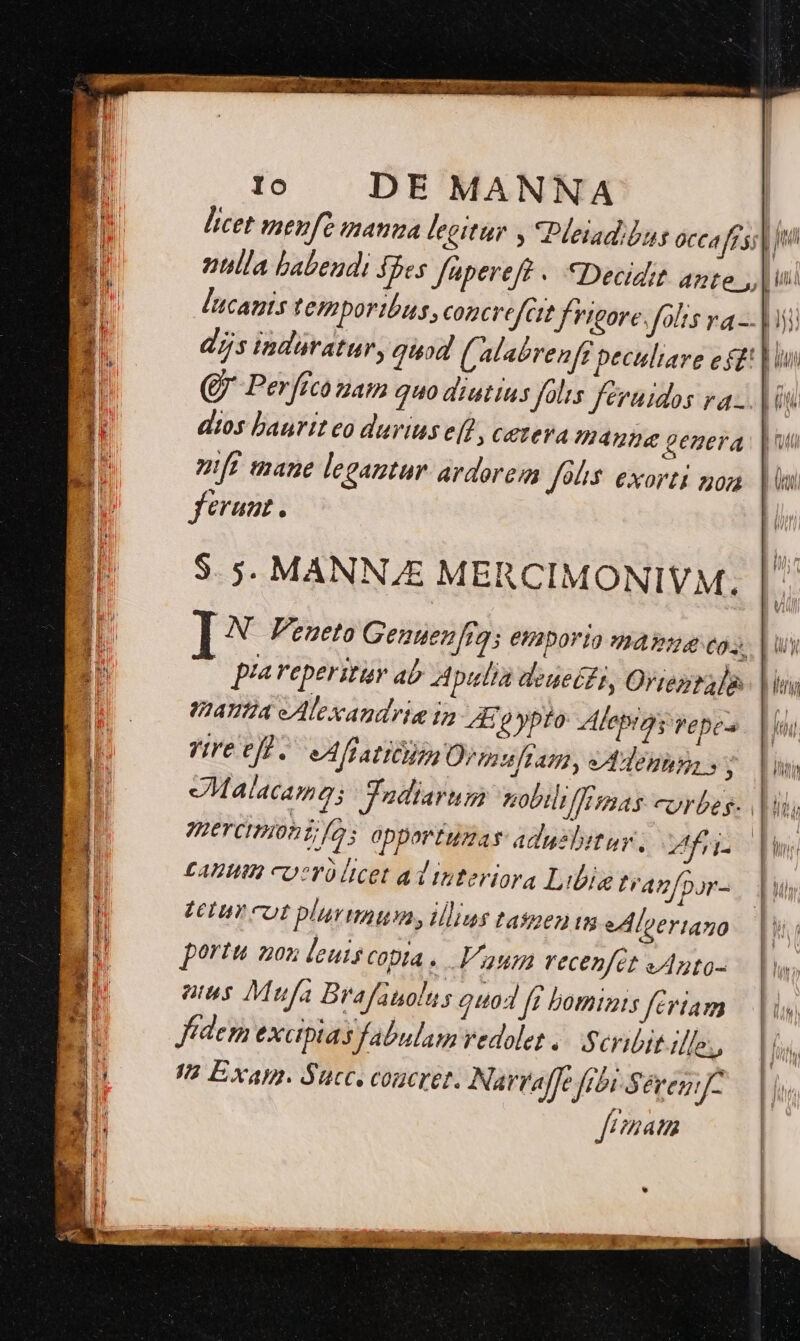 10 DE MANNA
licet menſe manna legitur, Pleiadibus occaſis;
nulla habendi ſpes ſupereſt. Decidit ante,
lucanis temporibus, concreſcit frigore, ſolis ra-
dijs induratur, quod Calabrenſi peculiare eſt;
& Perſico nam quo diutius ſolis feruidos ra-
dios haurit eo durius eſt, cætera mannæ genera
niſi mane legantur ardorem ſolis exorti non
ferunt.
§. 5. MANNÆ MERCIMONIVM.
IN Veneto Genuenſiq; emporio mannæ co-
pia reperitur ab Apulia deuecti, Orientale
manna Alexandriæ in Ægypto Alepiq; repe-
rire eſt. Aſiaticum Ormuſiam, Adenum,
Malacamq; Indiarum nobiliſſimas vrbes
mercimonijſq; opportunas aduehitur. Afri-
canum verò licet ad interiora Libiæ tranſpor-
tetur vt plurimum, illius tamen in Algeriano
portu non leuis copia. Vnum recenſet Anto-
nius Muſa Braſauolus quod ſi hominis ſeriam
fidem excipias fabulam redolet. Scribit ille,
in Exam. Succ. concret. Narraſſe ſibi Sereniſ-
ſimam